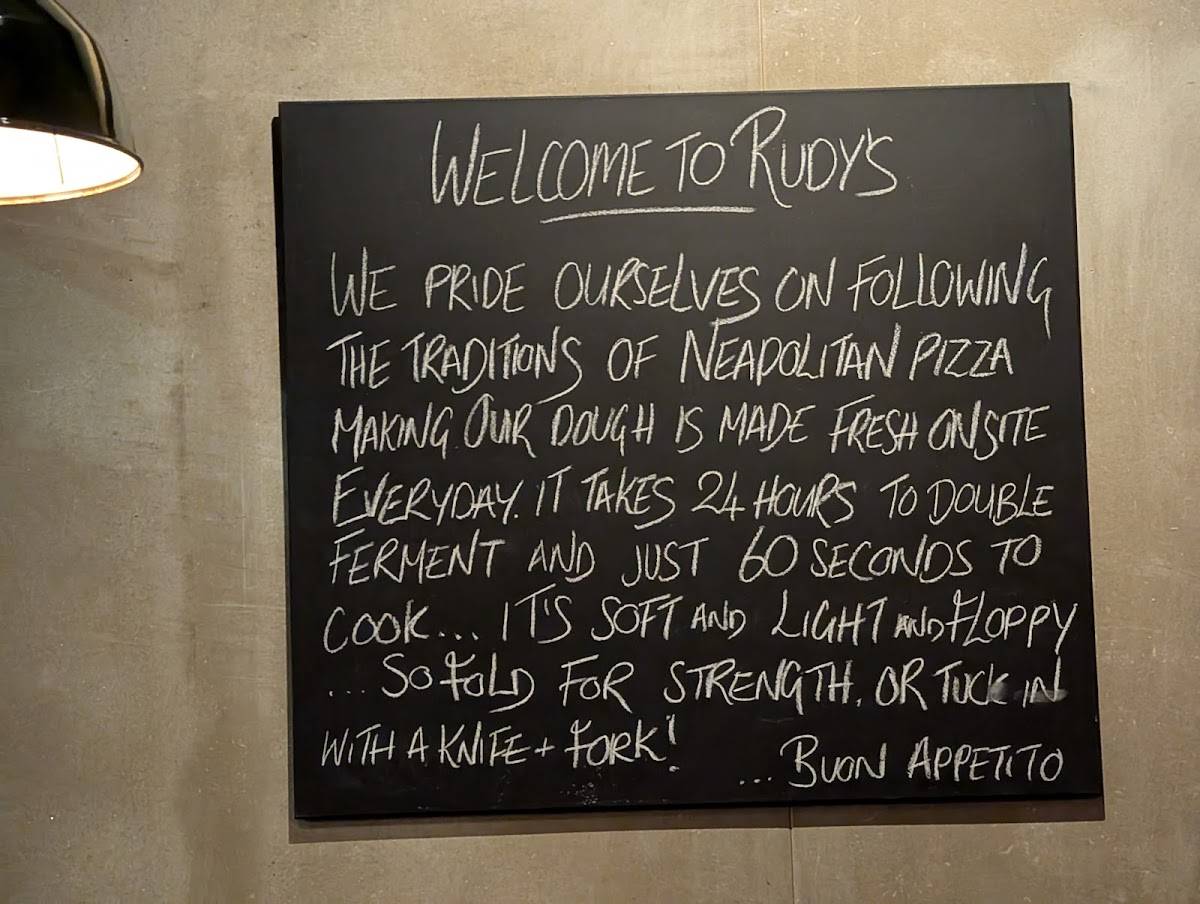 WELCOME TO RUDY'S
WE PRIDE OURSELVES ON FOLLOWING
THE TRADITIONS OF NEAPOLITAN PIZZA
MAKING. OUR DOUGH IS MADE FRESH ONSITE
EVERYDAY. IT TAKES 24 HOURS TO DOUBLE
FERMENT AND JUST 60 SECONDS TO
COOK... IT'S SOFT AND LIGHT AND FLOPPY
... SO FOLD FOR STRENGTH, OR TUCK IN
WITH A KNIFE + FORK!
... BUON APPETITO